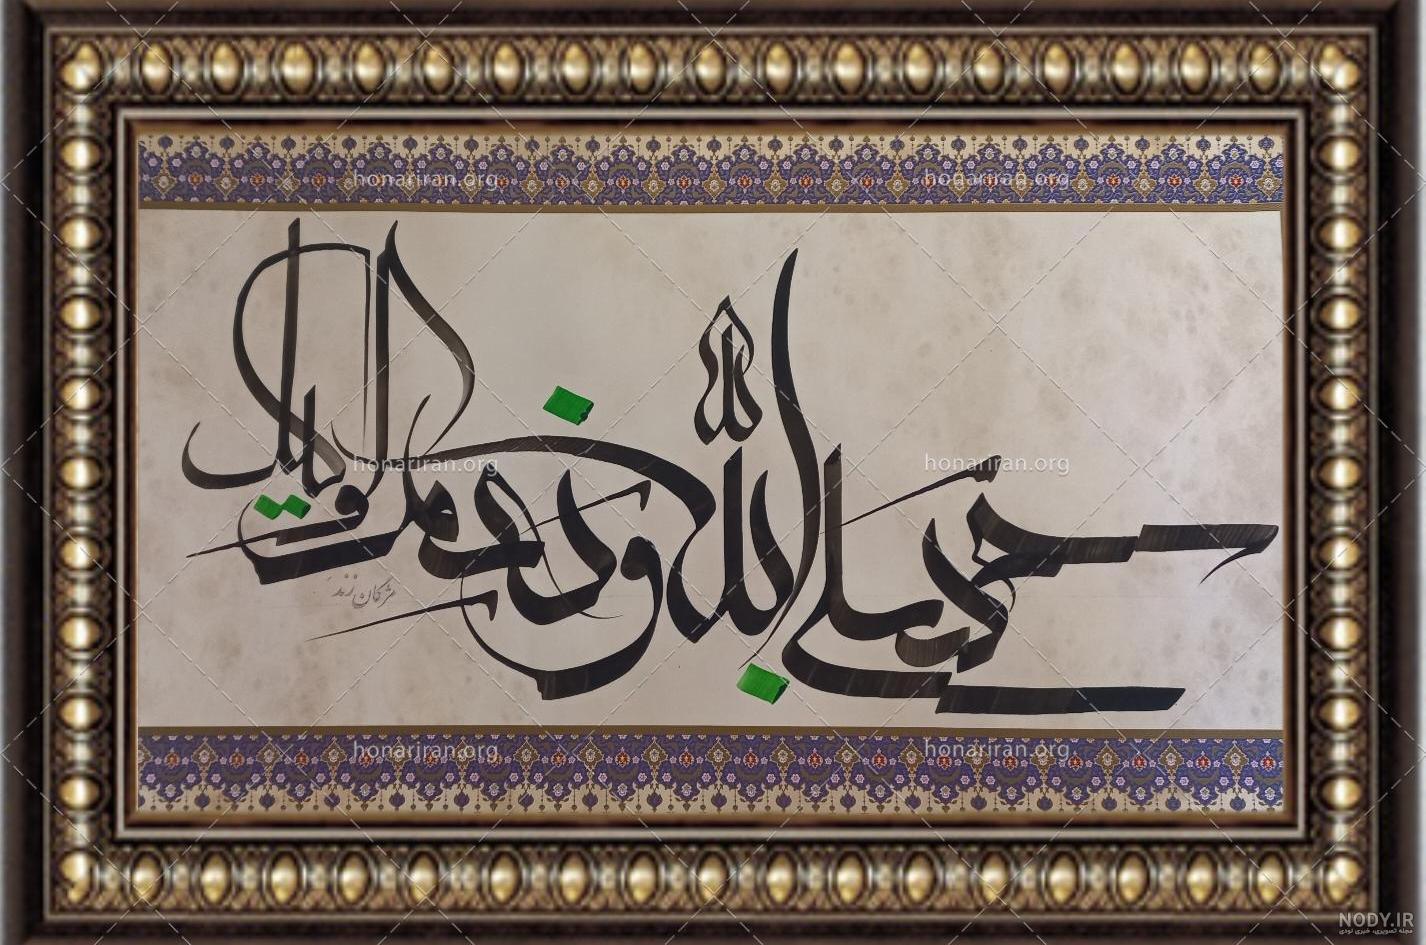 honariran.org honariran.org
حسبی الله و نعم الوکیل
honariran.org honariran.org
مژگان زند
honariran.org honariran.org
NODY.IR
مجله تصویری، خبری نودی